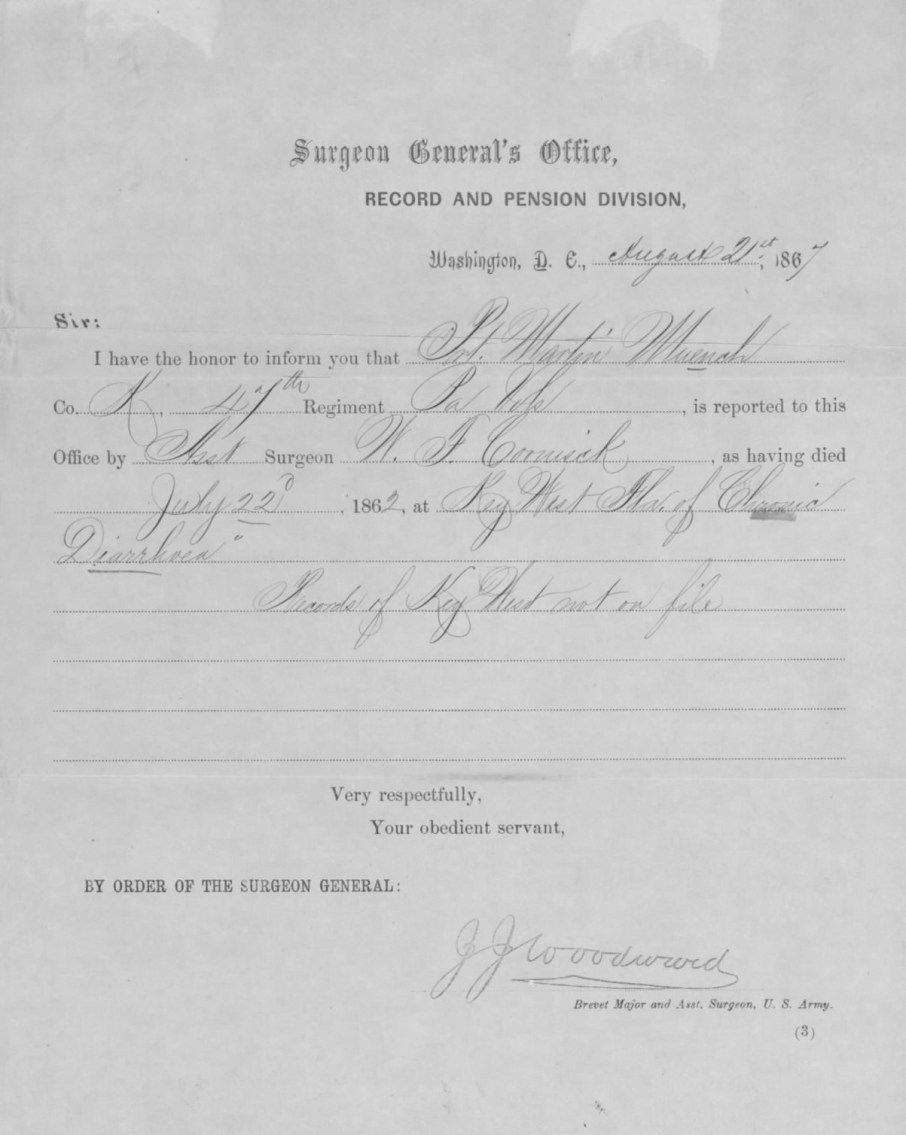 Surgeon General's Office,
RECORD AND PENSION DIVISION,
Washington, D. C., August 21st, 1867
Sir:
I have the honor to inform you that Pvt. Martin Muench
Co. K, 47th Regiment Pa Vols, is reported to this
Office by Asst Surgeon W. F. Cornisck, as having died
July 22d, 1862, at Key West Fla. of Chronic
Diarrhoea"
Records of Key West not on file
Very respectfully,
Your obedient servant,
BY ORDER OF THE SURGEON GENERAL:
J J Woodward
Brevet Major and Asst. Surgeon, U. S. Army.
(3)